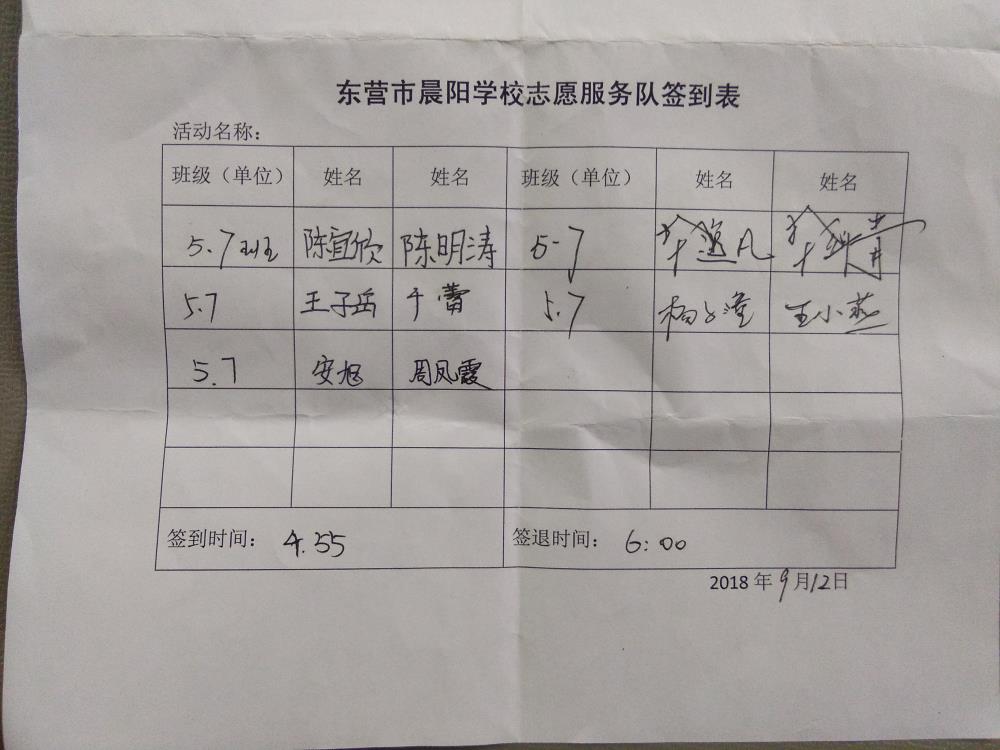 东营市晨阳学校志愿服务队签到表
活动名称：
班级（单位） 姓名 姓名 班级（单位） 姓名 姓名
5.7班 陈宜欣 陈明涛 5-7
5.7 王子岳 于蕾 5.7 王小燕
5.7 安旭 周凤霞
签到时间： 4.55 签退时间： 6:00
2018年9月12日